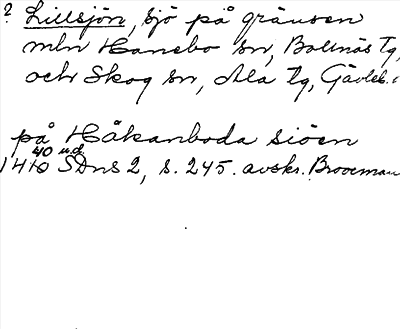 ? Lillsjön, sjö på gränsen
mln Hanebo sn, Bollnäs tg,
och Skog sn, Ala tg, Gävleb.
på Håkanboda siöen
40 u.d.
1410 SDns 2, s. 245. avskr. Brooman